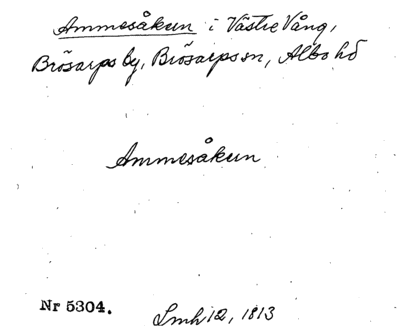 Ammesåkern i Västre Vång,
Brösarps by, Brösarps sn, Albo hd
Ammesåkern
Nr 5304.
Smh 12, 1813